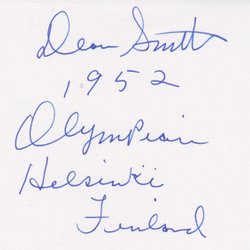 Dean Smith
1952
Olympian
Helsinki
Finland